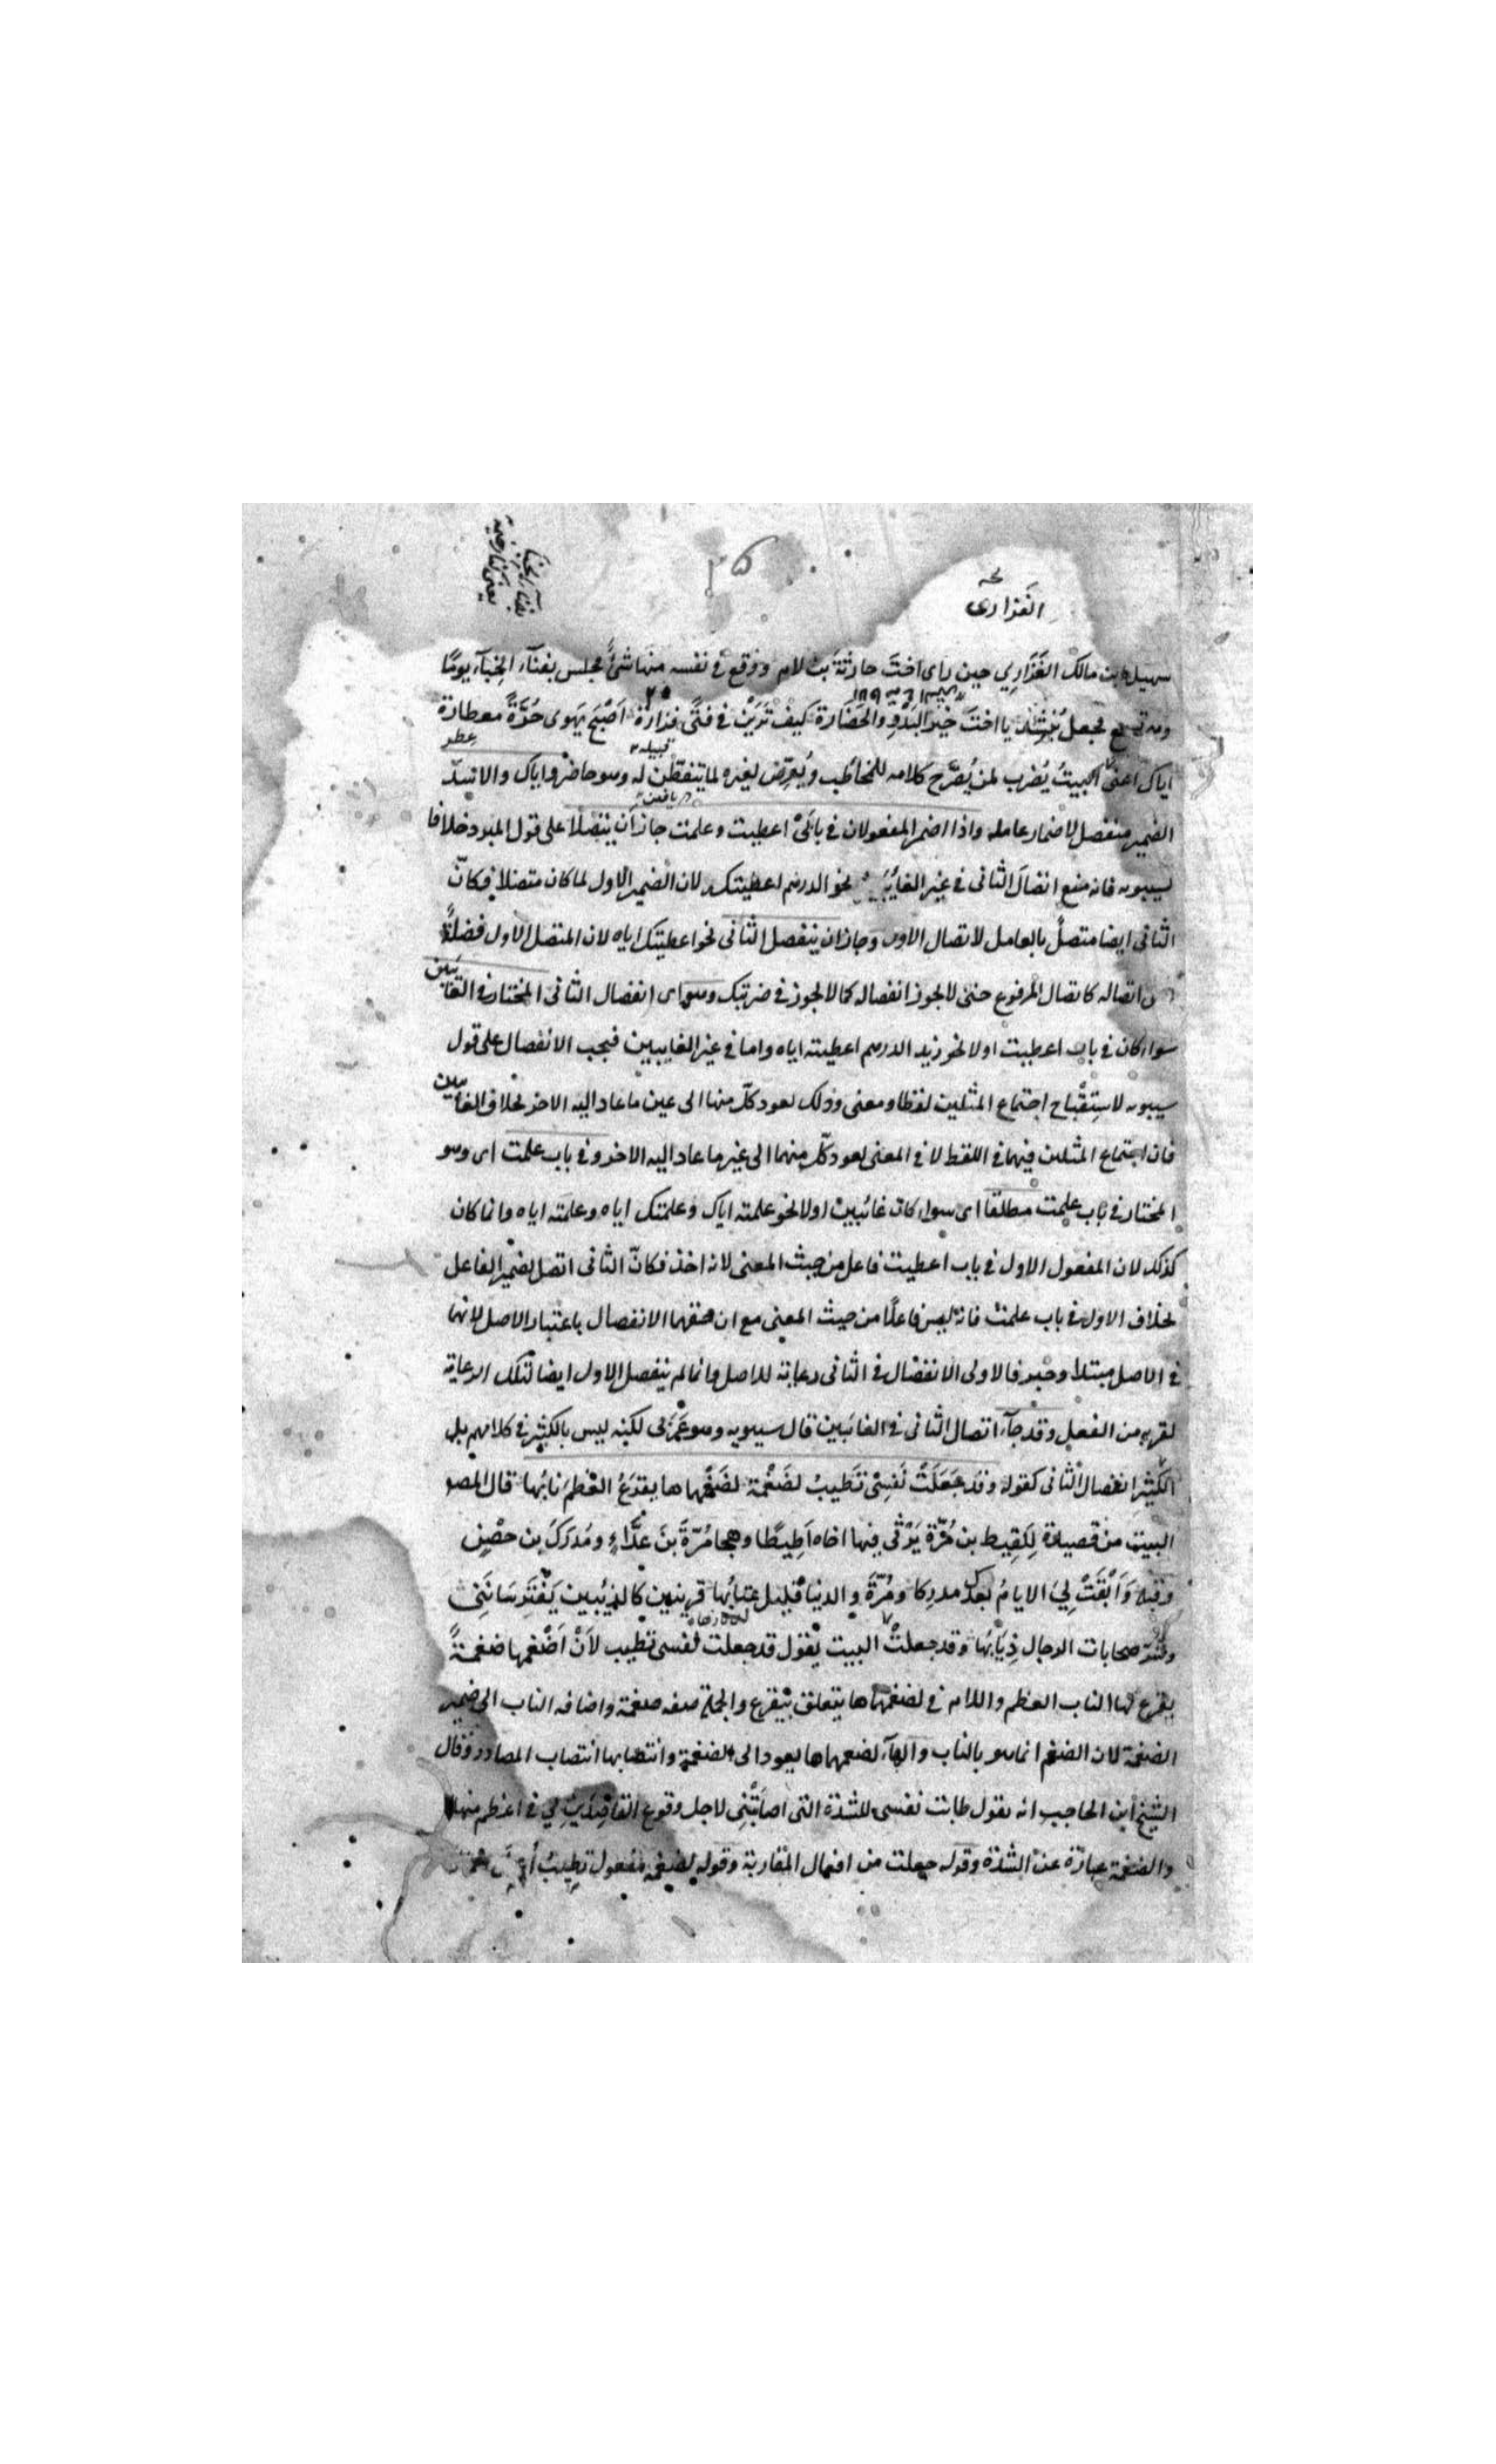 ٢٥
الفَزَارِى
بفناء الخباء
سهيل بن مالك الفَزَارِي حين راى اختَ حارثةَ بن لام ووقع فى نفسه منها شئٌ فجلس بفناء الخِبآء يومًا
وهى تسمع فجعل يُنشد يا اختَ خير البَدْوِ والحَضَارة كيف تَرَيْن فى فتًى فزارة اَصْبَحَ يهوى حُرَّةً معطارة
قبيله عطر
اياك اعنى البيتُ يُضرب لمن يُصَرِّح كلامه للمخاطب ويُعرّض لغيره لما يتفطّن له وهو حاضر واياك والاسدَ
الضمير منفصل لاضمار عامله واذا اضمر المفعولان فى بابَىْ اعطيت وعلمت جاز ان يتصلا على قول المبرد خلافا
لسيبويه فانه منع اتصالَ الثانى فى غير الغائبَين نحو الدرهم اعطيتك لان الضمير الاول لما كان متصلا فكانّ
الثانى ايضا متصلٌ بالعامل لاتصال الاول وجاز ان ينفصل الثانى نحو اعطيتك اياه لان المتصل الاول فضلةٌ
اتصاله كاتصال المرفوع حتى لا يجوز انفصاله كما لا يجوز فى ضربتك وهو اى انفصال الثانى المختار فى الغائبين
سواء كان فى باب اعطيت اولا نحو زيد الدرهم اعطيته اياه واما فى غير الغايبين فيجب الانفصال على قول
سيبويه لاستِقْباح اجتماع المثلين لفظا ومعنى وذلك لعود كلّ منها الى عين ما عاد اليه الاخر بخلاف الغايبين
فان اجتماع المثلين فيهما فى اللفظ لا فى المعنى لعود كلّ منهما الى غير ما عاد اليه الاخر وفى باب علمت اى وهو
المختار فى باب علمت مطلقا اى سواء كان غائبين اولا نحو علمته اياك وعلمتك اياه وعلمته اياه وانما كان
كذلك لان المفعول الاول فى باب اعطيت فاعل من حيث المعنى لانه اخذ فكانّ الثانى اتصل بضمير الفاعل
بخلاف الاول فى باب علمت فانه ليس فاعلًا من حيث المعنى مع ان حقهما الانفصال باعتبار الاصل لانهما
فى الاصل مبتدا وخبر فالاولى الانفصال فى الثانى رعاية للاصل وانما لم ينفصل الاول ايضا لتلك الرعاية
لقربه من الفعل وقد جآء اتصال الثانى فى الغائبين قال سيبويه وهو عَرَبى لكنه ليس بالكثير فى كلامهم بل
الكثير انفصال الثانى كقوله وقد جَعَلَتْ نَفسِىْ تَطيبُ لضَغْمةٍ لضَغْمِهِماها يقرَعُ العَظمَ نابُها قال المصو
البيت من قصيدة لِلَقِيط بن مُرَّة يَرْثى فيها اخاه اَطِيطًا وهجا مُرّةَ بنَ عَدَّاءٍ ومُدرَكَ بن حصْنٍ
وقبله وَاَبْقَتْ لِىَ الايامُ بعدك مدركا ومُرَّةَ والدنيا قليل عتابُها قرينين كالذئبين يَقْتَسِمَانَنِى
وشرّ صحابات الرجال ذِيَابُها وقد جعلتْ البيت يقول قد جعلت نفسى تطيب لاَنْ اَضْغمها ضغمةً
يقرع لها الناب العظم واللام فى لضغمهماها يتعلق بيقرع والجملة صفه ضغمة واضافه الناب الى ضمير
الضغمة لان الضغم انما هو بالناب والهاء لضغمهماها يعود الى الضغمة وانتصابها انتصاب المصادر وقال
الشيخ ابن الحاجب انه يقول طابت نفسى للشدّة التى اصابَتْنى لاجل وقوع القاصِدَيْنِ لِي فى اعظم منها
والضغمة عبارة عن الشدّة وقوله جعلت من افعال المقاربة وقوله لضغمة مفعول تطيبُ